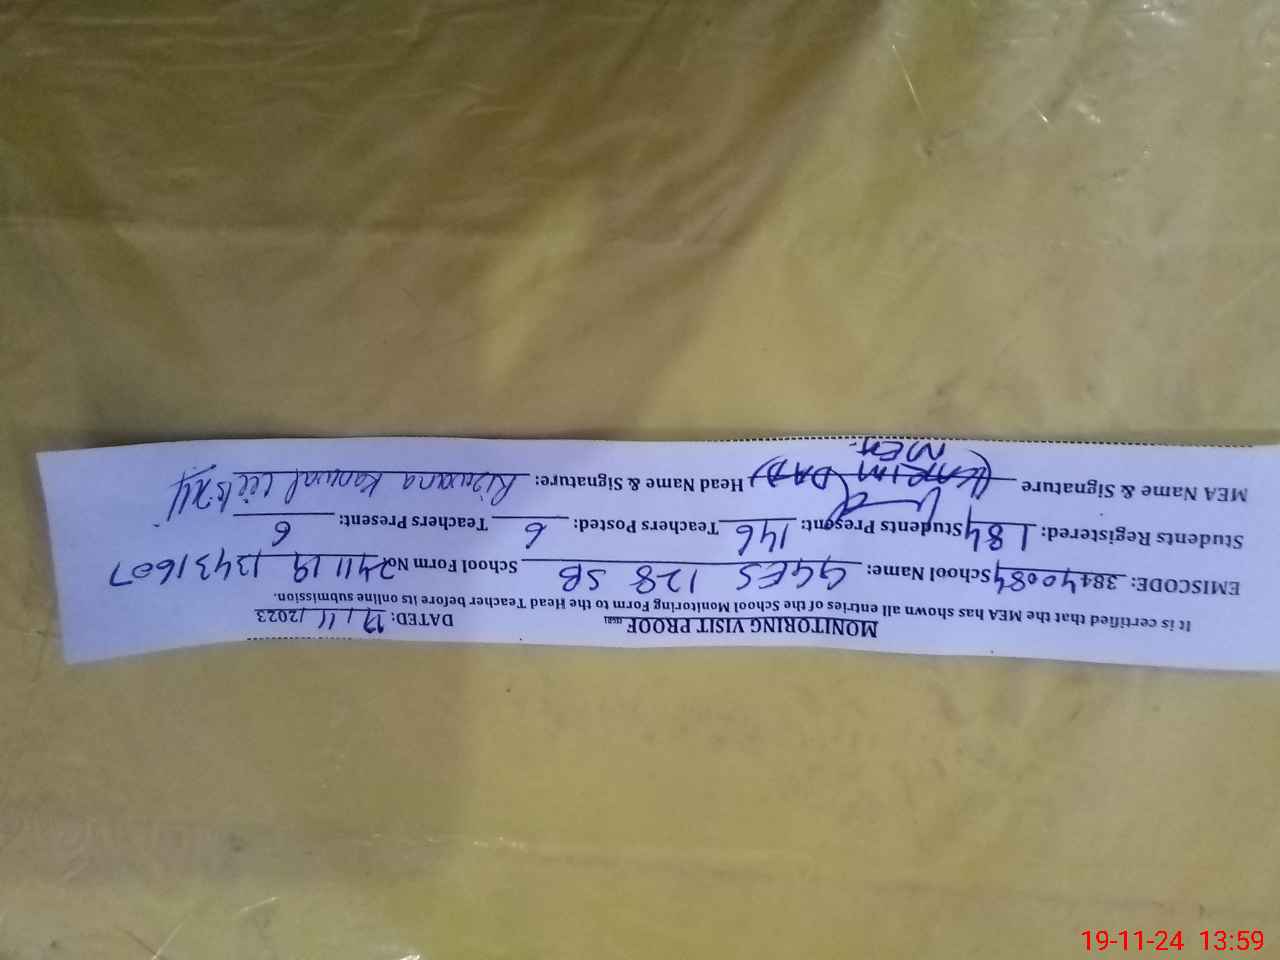 MONITORING VISIT PROOF DATED: 19/11/2023
It is certified that the MEA has shown all entries of the School Monitoring Form to the Head Teacher before its online submission.
EMISCODE: 38440084 School Name: GGES 128 SB School Form No 241119 13431607
Students Registered: 184 Students Present: 146 Teachers Posted: 6 Teachers Present: 6
MEA Name & Signature (KARIM DAD) Head Name & Signature: Rizwana Kanwal
MEA.
19-11-24 13:59